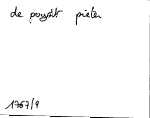 de puysit pieter
1767/9